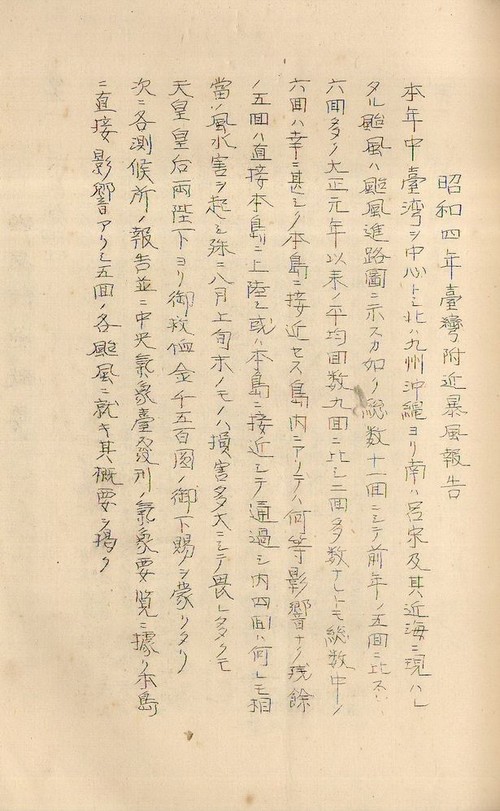 昭和四年臺灣附近暴風報告
本年中臺湾ヲ中心トシ北ハ九州沖縄ヨリ南ハ呂宋及其近海ニ現ハレ
タル颱風ハ颱風進路圖ニ示スカ如ク総数十一回ニシテ前年ノ五回ニ比スレハ
六回多ク大正元年以来ノ平均回数九回ニ比シ二回多数ナレトモ総数中ノ
六回ハ幸ニ甚シク本島ニ接近セス島内ニアリテハ何等影響ナク残餘
ノ五回ハ直接本島ニ上陸シ或ハ本島ニ接近シテ通過シ内四回ハ何レモ相
當ノ風水害ヲ起シ殊ニ八月上旬末ノモノハ損害多大ニシテ畏レ多クモ
天皇皇后両陛下ヨリ御救恤金千五百圓ノ御下賜ヲ蒙リタリ
次ニ各測候所ノ報告並ニ中央氣象臺発刊ノ氣象要覧ニ據リ本島
ニ直接影響アリシ五回ノ各颱風ニ就キ其概要ヲ掲ク